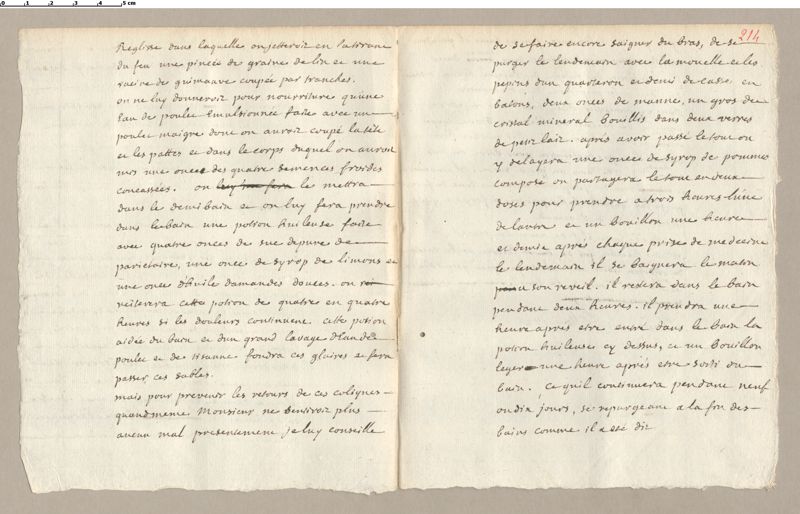 0 1 2 3 4 5 cm
Reglisse dans laquelle on jetteroit en la tirant
du feu une pincée de graine de lin et une
racine de guimauve coupée par tranches.
on ne luy donneroit pour nourriture qu'une
Eau de poulet Emulsionnée faite avec un
poulet maigre dont on auroit coupé la tete
et les pattes et dans le corps duquel on auroit
mis une once des quatre semences froides
concassées. on luy fera le mettra
dans le demi bain et on luy fera prendre
dans le bain une potion huileuse faite
avec quatre onces de suc depuré de
parietaire, une once de syrop de limons et
une once d'huile damandes douces. on
reiterera cette potion de quatre en quatre
heures si les douleurs continuent. cette potion
aidée du bain et d'un grand lavage d'Eau de
poulet et de tisanne fondra ces glaires et fera
passer ces sables.
mais pour prevenir les retours de ces coliques
quand meme Monsieur ne sentiroit plus
aucun mal presentement je luy conseille
214
de se faire encore saigner du bras, de se
purger le lendemain avec la mouelle et les
pepins d'un quarteron et demi de casse en
batons, deux onces de manne, un gros de
cristal mineral Bouillis dans deux verres
de petit lait. aprés avoir passé le tout on
y delayera une once de syrop de pommes
composé on partagera le tout en deux
doses pour prendre a trois heures l'une
de l'autre et un Bouillon une heure
et demie aprés chaque prise de medecine
le lendemain il se baignera le matin
a son reveil. il restera dans le bain
pendant deux heures. il prendra une
heure aprés etre entré dans le bain la
potion huileuse cy dessus, et un Bouillon
leger une heure aprés etre sorti du
bain. ce qu'il continuera pendant neuf
ou dix jours, se repurgeant a la fin des
bains comme il a eté dit